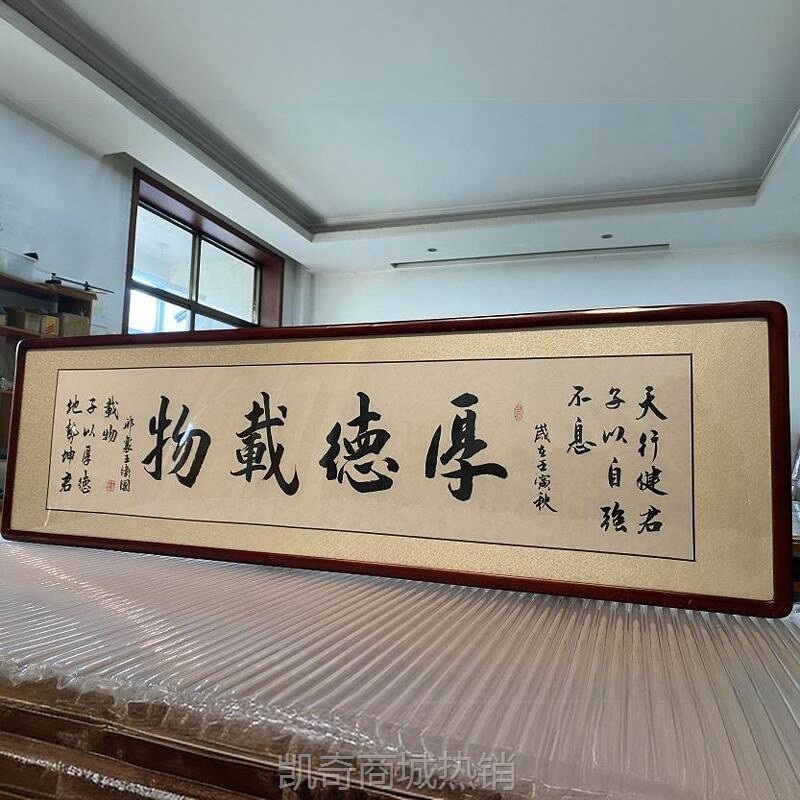 天行健君
子以自強
不息
歲在壬寅秋
厚德載物
地勢坤君
子以厚德
載物
凯奇商城热销